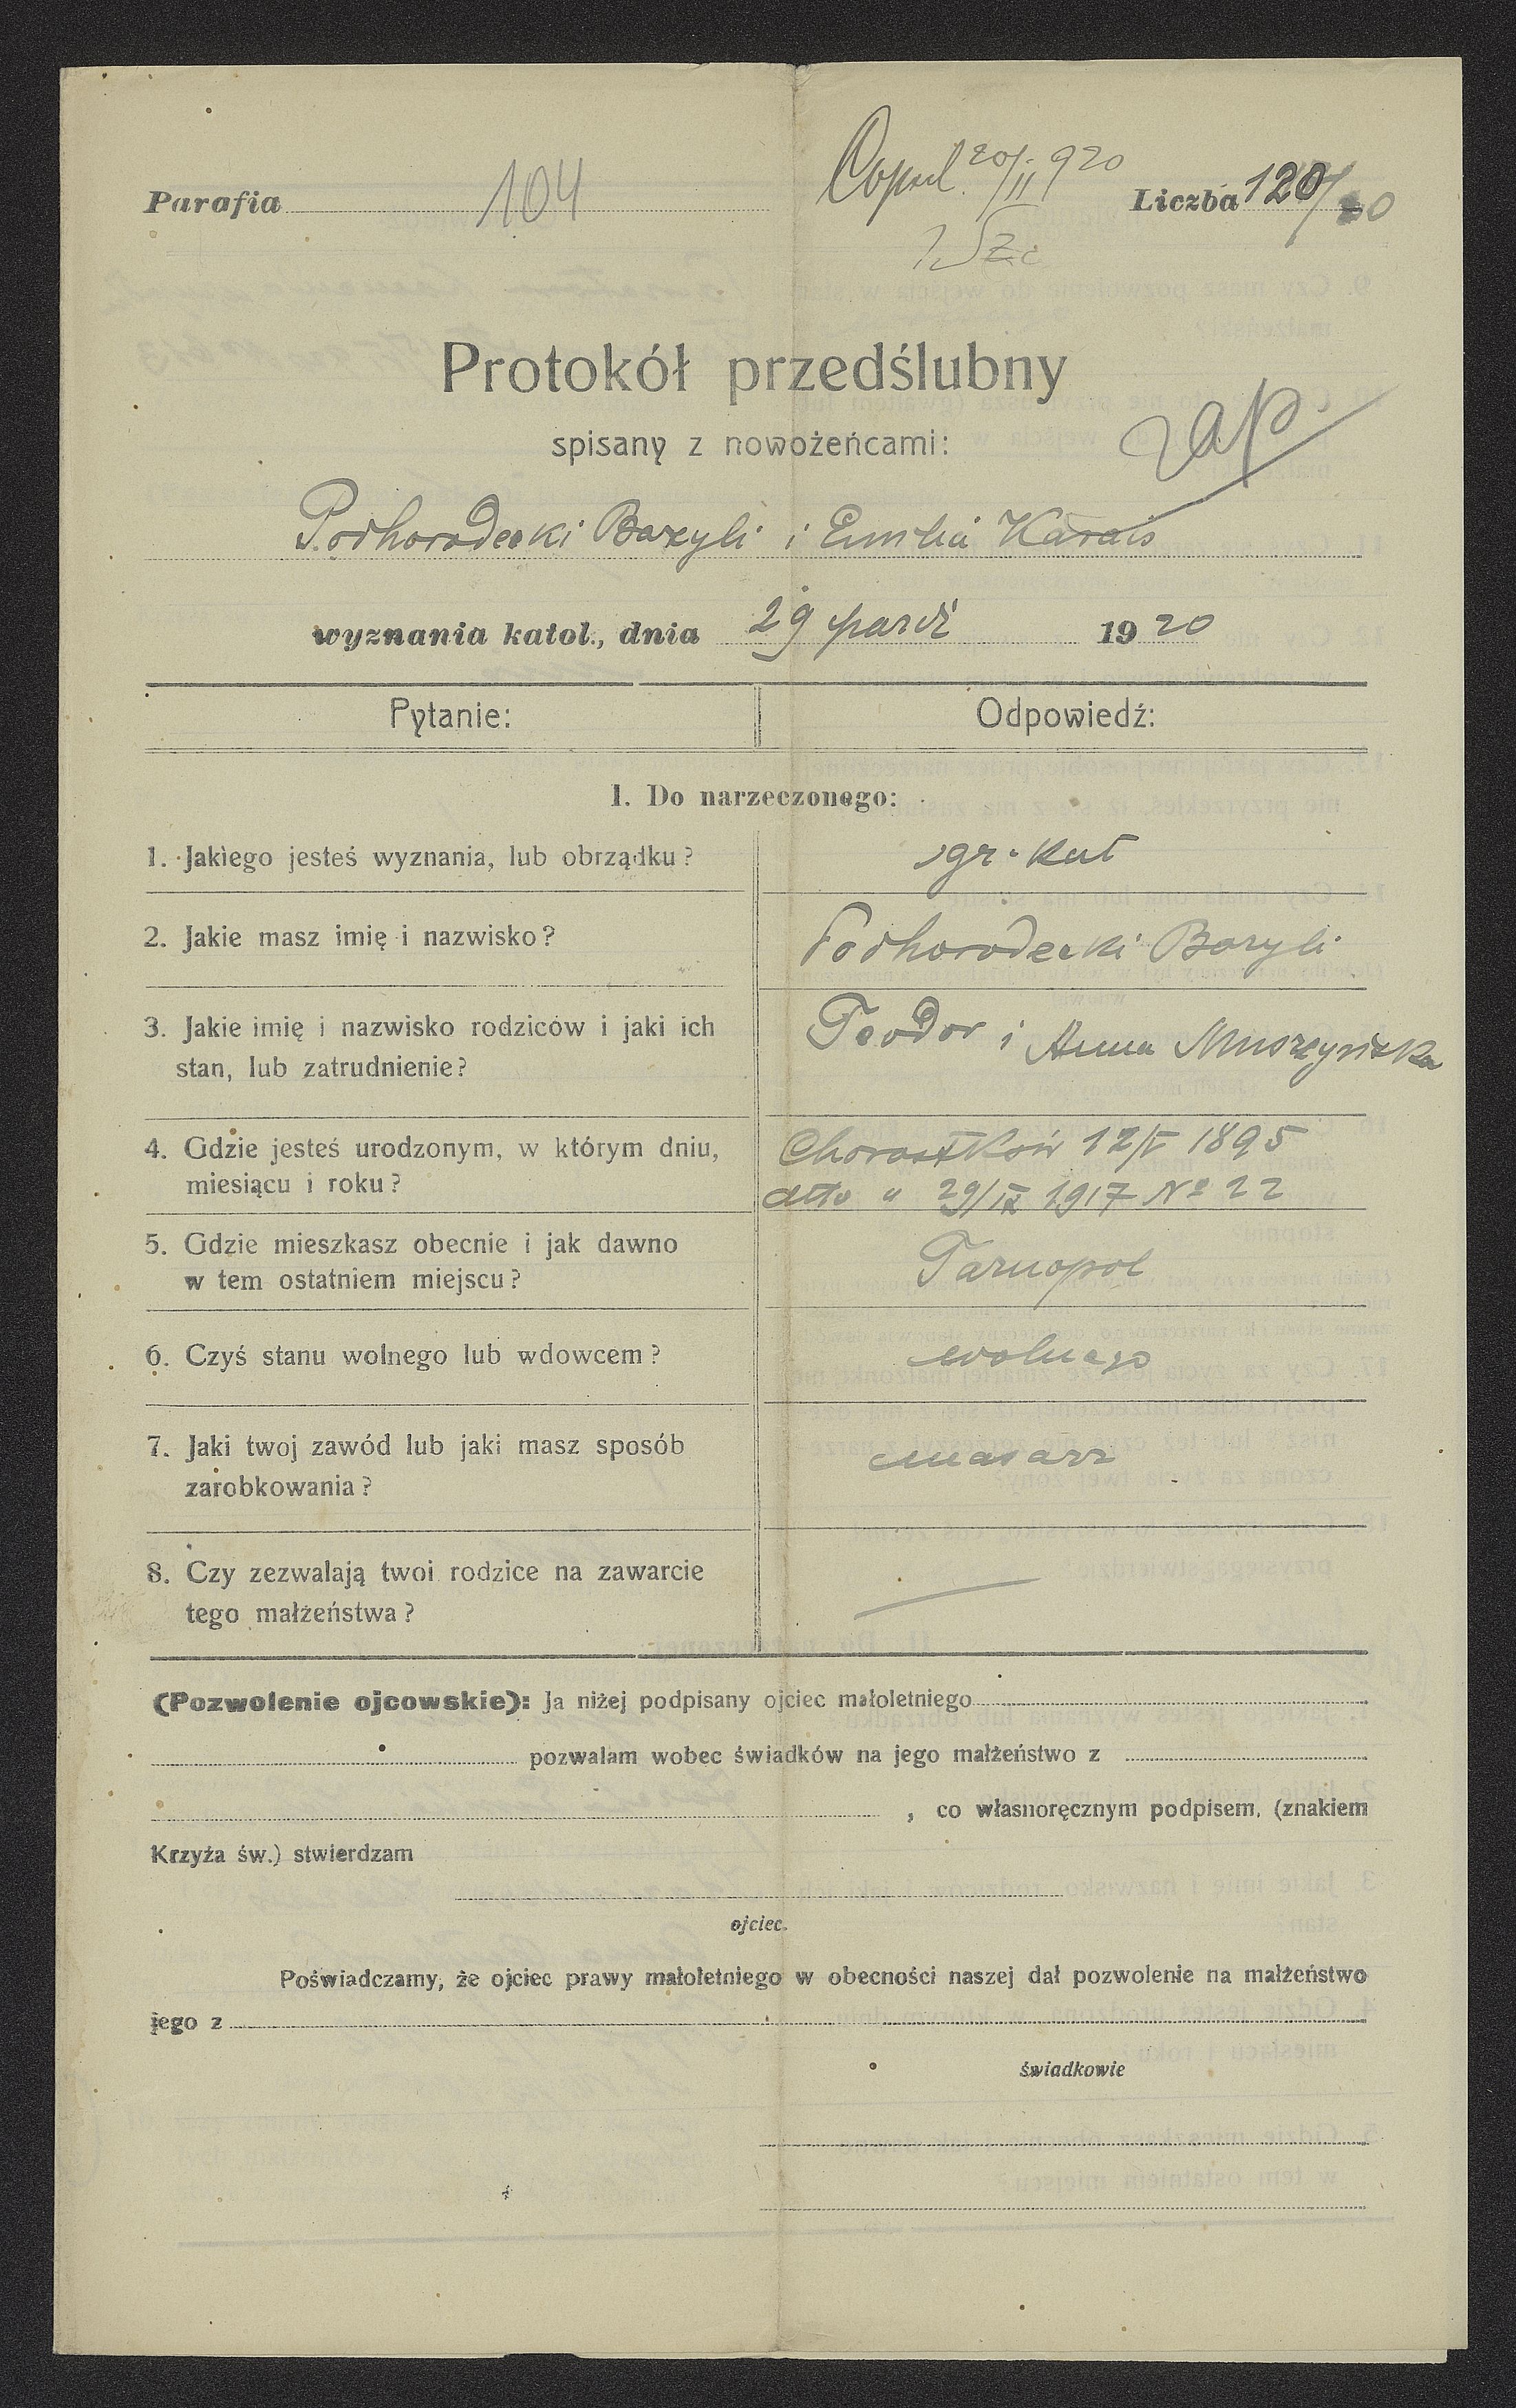 Parafia 104
Copul. 20/II 920
Liczba 120/20
Protokół przedślubny
zap.
spisany z nowożeńcami:
Podhorodecki Bazyli i Emilia Karais
wyznania katol., dnia 29 paźdź 1920
Pytanie: Odpowiedź:
I. Do narzeczonego:
1. Jakiego jesteś wyznania, lub obrządku? gr. kat
2. Jakie masz imię i nazwisko? Podhorodecki Bazyli
3. Jakie imię i nazwisko rodziców i jaki ich Teodor i Anna Muszyńska
stan, lub zatrudnienie?
4. Gdzie jesteś urodzonym, w którym dniu, Chorostków 12/V 1895
miesiącu i roku? dtto " 29/IX 1917 No 22
5. Gdzie mieszkasz obecnie i jak dawno Tarnopol
w tem ostatniem miejscu?
6. Czyś stanu wolnego lub wdowcem? wolnego
7. Jaki twoj zawód lub jaki masz sposób masarz
zarobkowania?
8. Czy zezwalają twoi rodzice na zawarcie
tego małżeństwa?
(Pozwolenie ojcowskie): Ja niżej podpisany ojciec małoletniego
pozwalam wobec świadków na jego małżeństwo z
, co własnoręcznym podpisem, (znakiem
Krzyża św.) stwierdzam
ojciec.
Poświadczamy, że ojciec prawy małoletniego w obecności naszej dał pozwolenie na małżeństwo
jego z
świadkowie